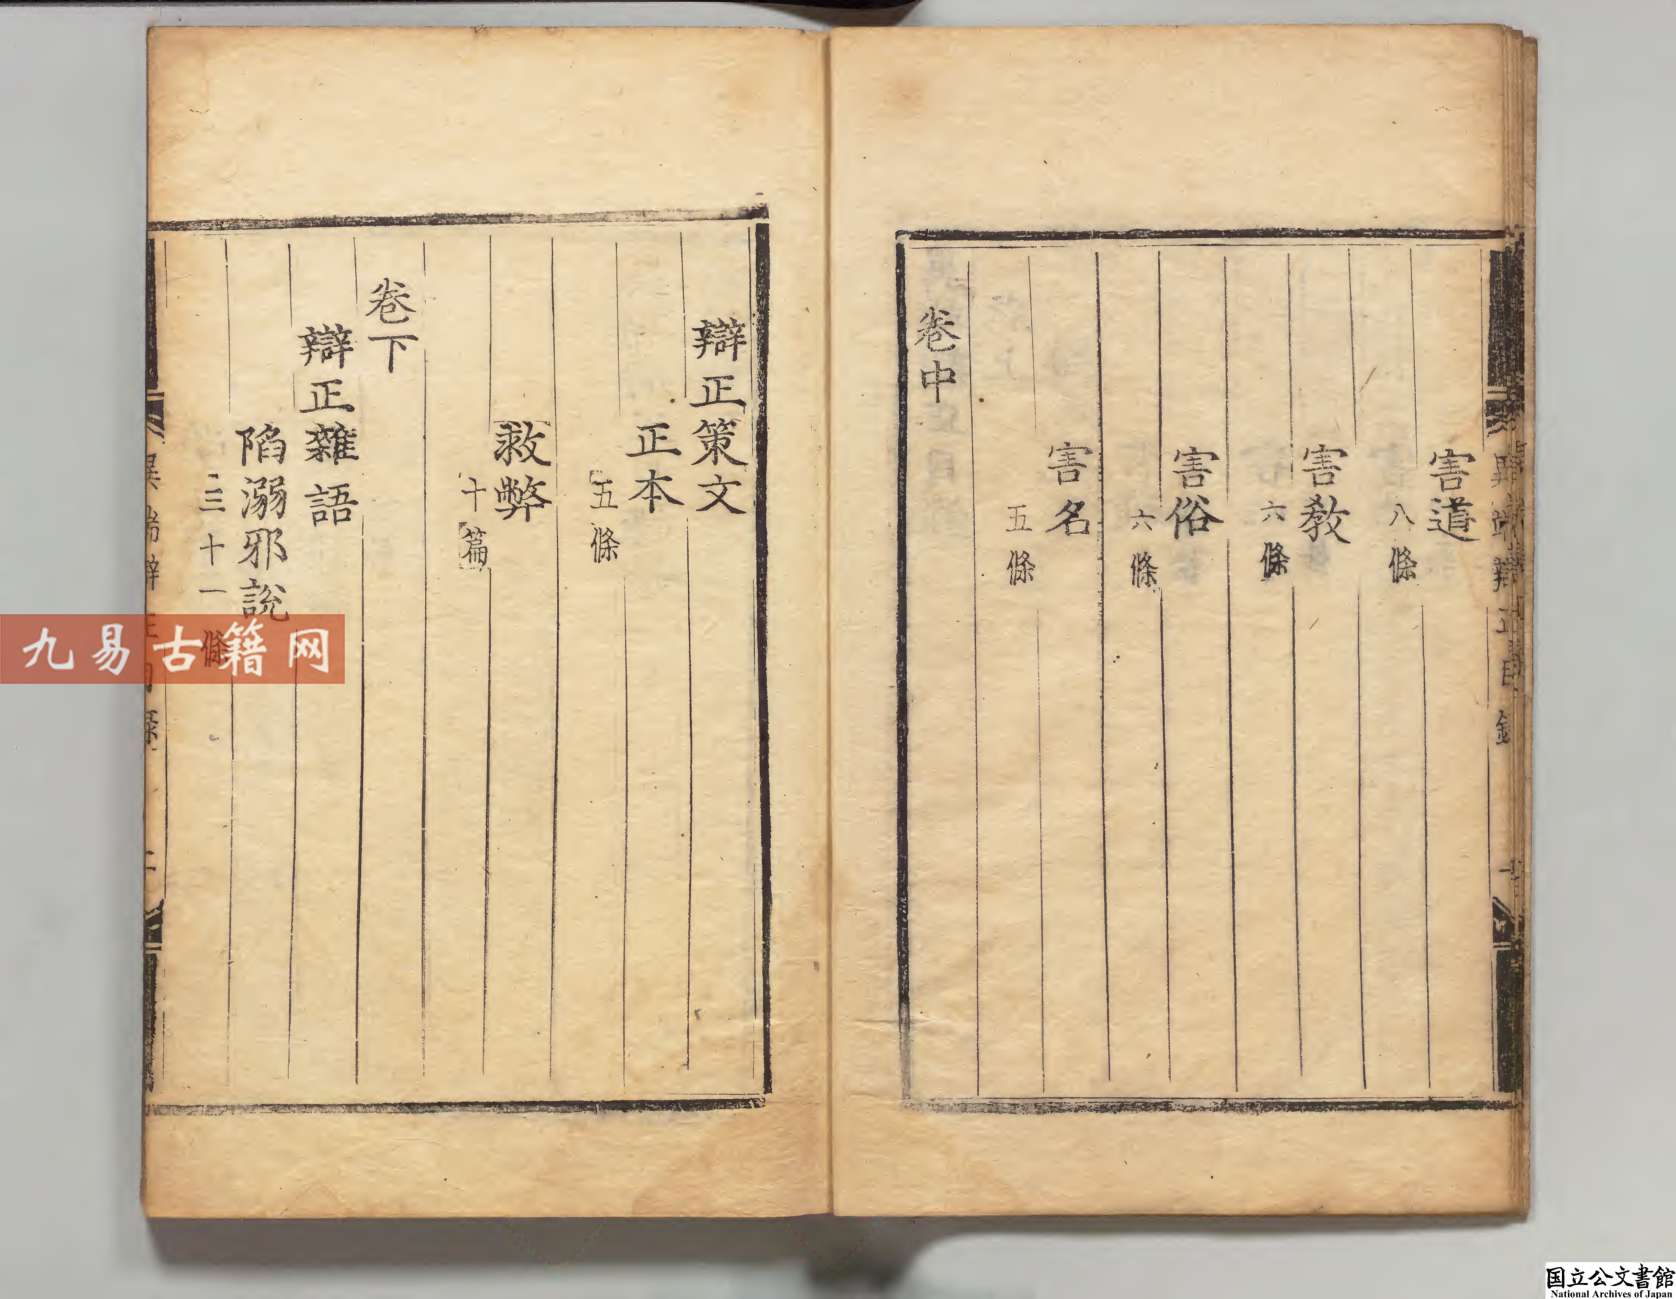 害道
八條
害教
六條
害俗
六條
害名
五條
卷中
辯正策文
正本
五條
救弊
十篇
卷下
辯正雜語
陷溺邪說
三十一條
九易古籍网
国立公文書館
National Archives of Japan